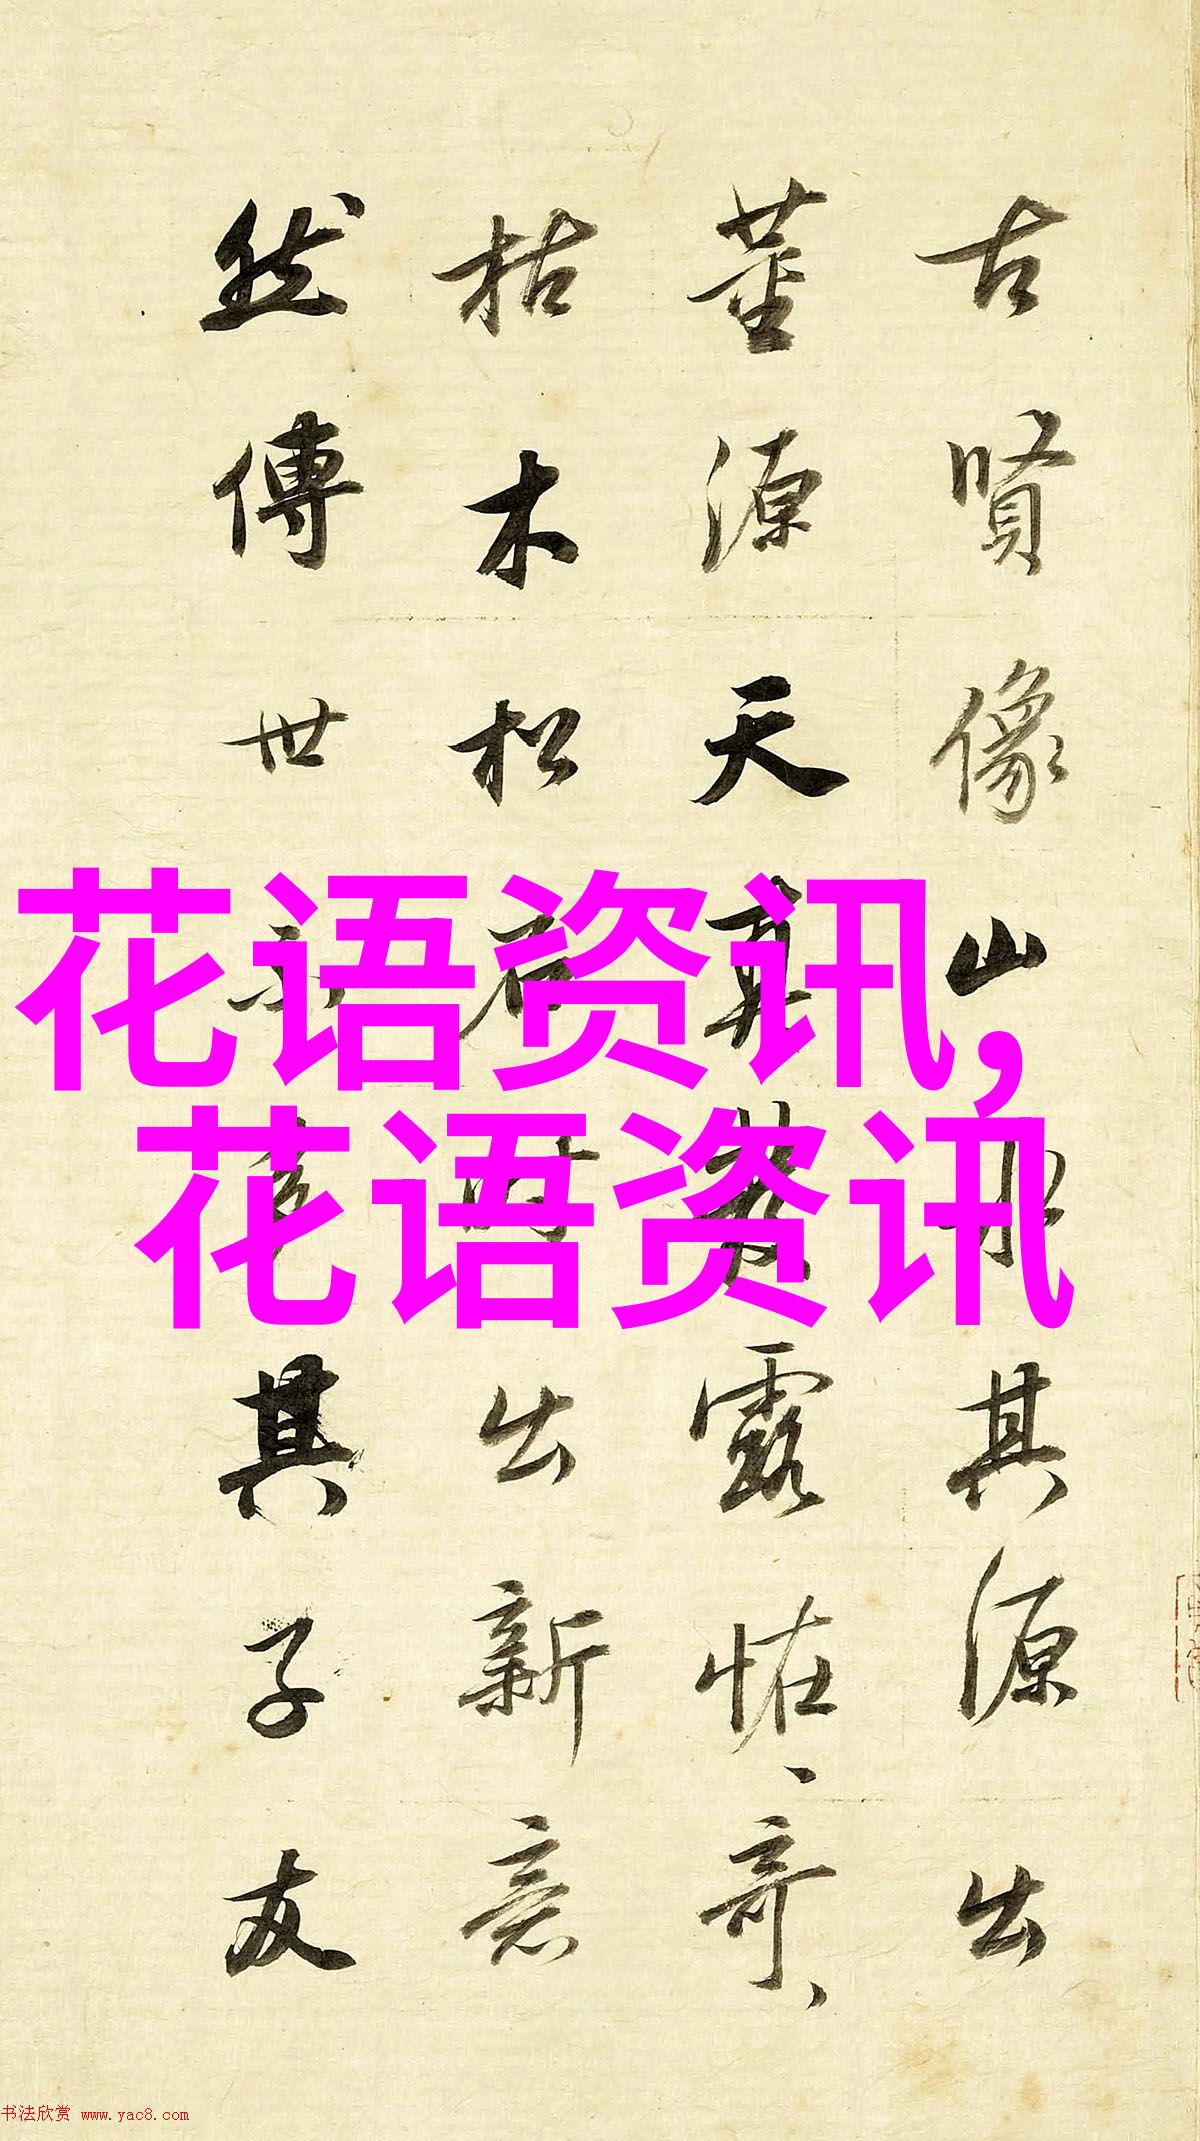 古賢像山水其源出
董源天真發露恠、奇、
枯木松石時出新意
然傳世不多其子友
花语资讯,
花语资讯
书法欣赏 www.yac8.com